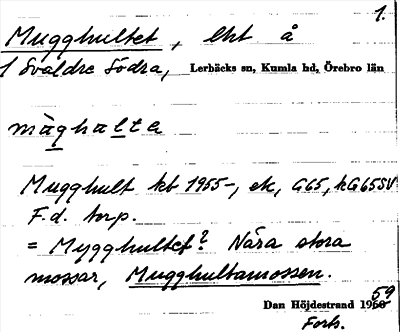 1.
Mugghultet, lht å
1 Svaldre Södra, Lerbäcks sn, Kumla hd, Örebro län
màghalta
Mugghult kb 1955-, ek, G65, hG65SV
F.d. torp.
= Mygghultet? Nära stora
mossar, Mugghultamossen.
Dan Höjdestrand 1959
Forts.